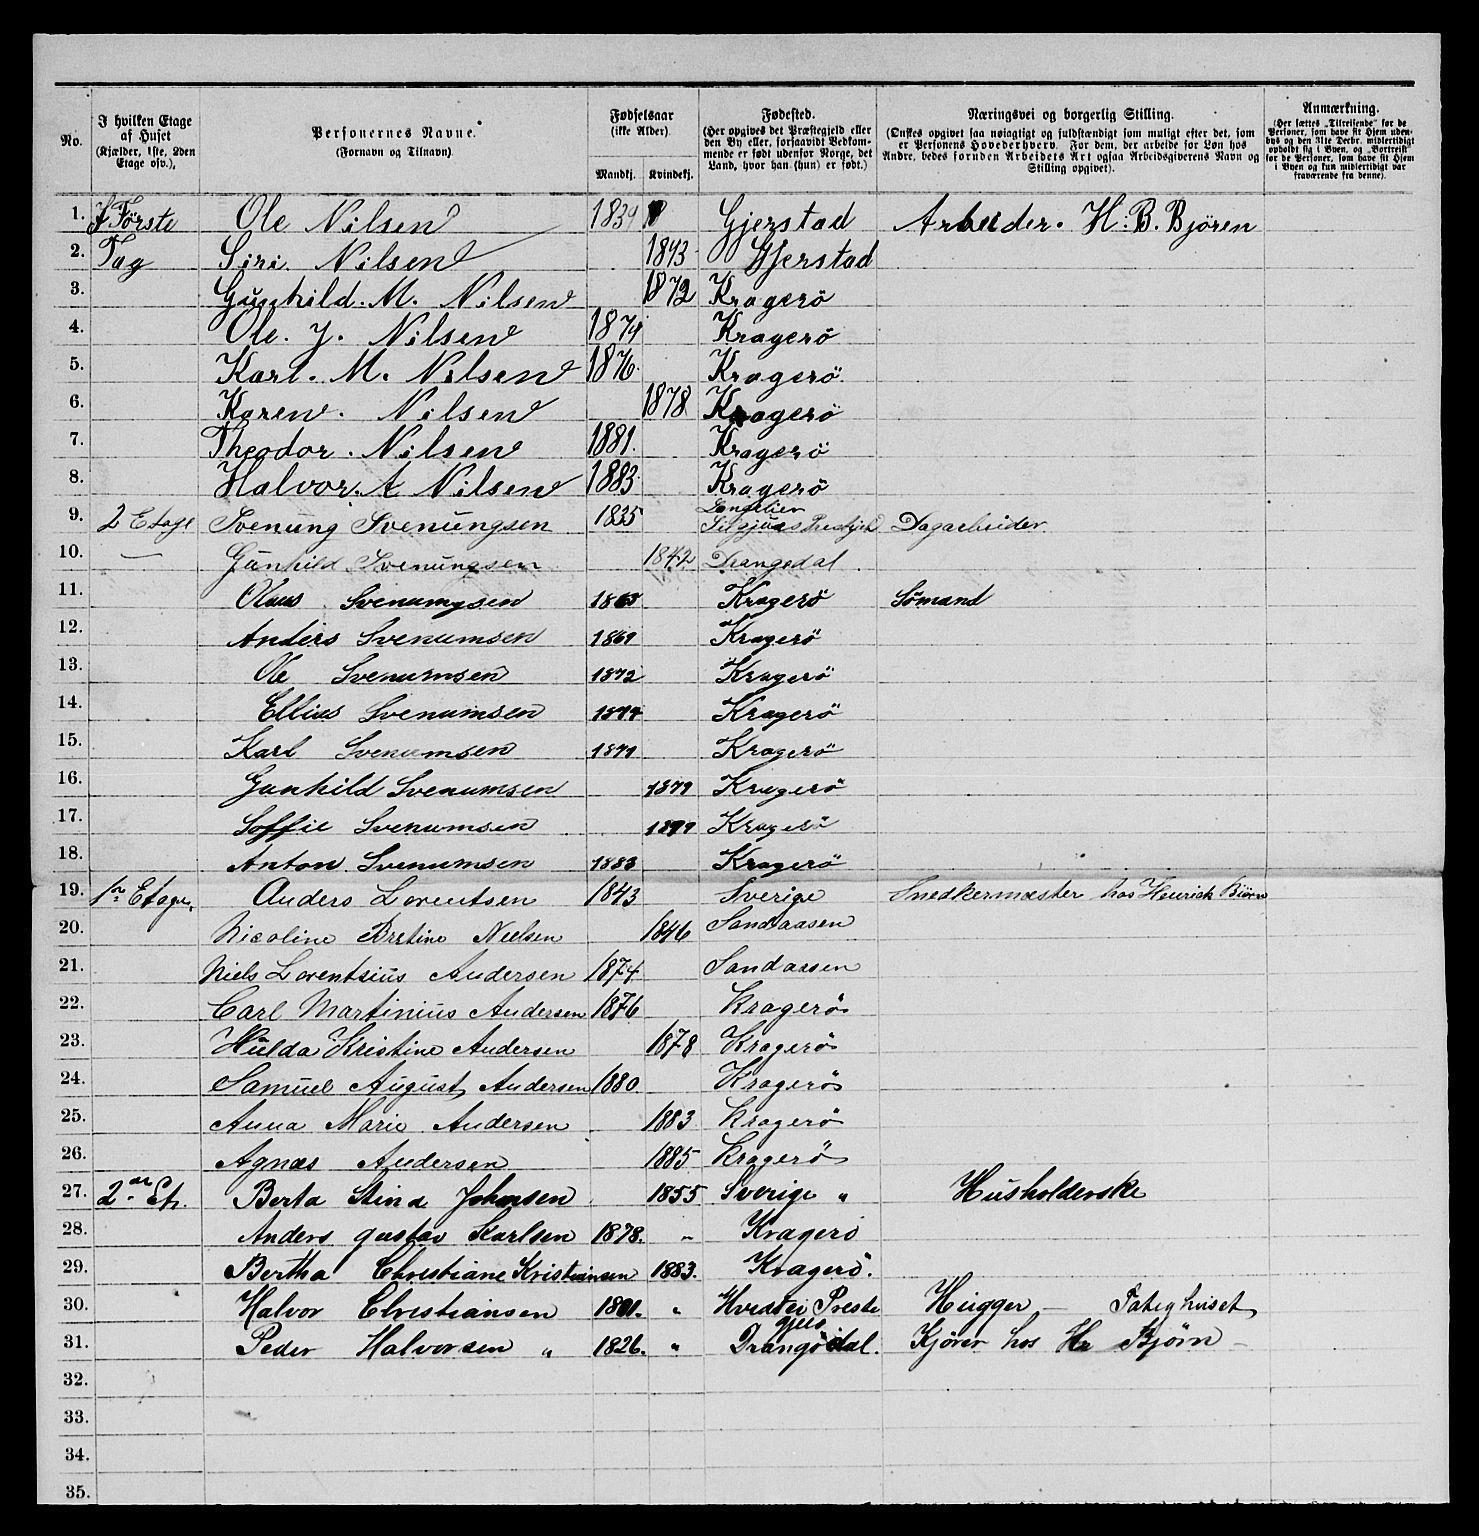 No.
I hvilken Etage af Huset (Kjælder, 1ste, 2den Etage osv.),
Personernes Navne. (Fornavn og Tilnavn)
Fødselsaar (ikke Alder). Mandkj. Kvindekj.
Fødested. (Her opgives det Præstegjeld eller den By eller, forsaavidt Vedkommende er født udenfor Norge, det Land, hvor han (hun) er født.)
Næringsvei og borgerlig Stilling. (Ønskes opgivet saa nøiagtigt og fuldstændigt som muligt efter det, som er Personens Hovederhverv. For dem, der arbeide for Løn hos Andre, bedes foruden Arbeidets Art ogsaa Arbeidsgiverens Navn og Stilling opgivet).
Anmærkning. (Her sættes „Tilreisende“ for de Personer, som have sit Hjem udenbys og den 31te Decbr. midlertidigt opholdt sig i Byen, og „Bortreist“ for de Personer, som have sit Hjem i Byen og kun midlertidigt var fraværende fra denne).
1. Første Ole Nilsen 1839 Gjerstad Arbeider. H. B. Björen
2. Tag Siri Nilsen 1843 Gjerstad
3. Gunhild. M. Nilsen 1872 Kragerö
4. Ole. J. Nilsen 1874 Kragerö
5. Karl. M. Nilsen 1876 Kragerö
6. Karen. Nilsen 1878 Kragerö
7. Theodor. Nilsen 1881. Kragerö
8. Halvor. A Nilsen 1883 Kragerö
9. 2 Etage Svenung Svenungsen 1835 Dagarbeider
10. — Gunhild Svenungsen 1842 Drangedal
11. Olaus Svenumgsen Kragerö Sømand
12. Anders Svenumsen 1869 Kragerö
13. Ole Svenumsen 1872 Kragerö
14. Ellius Svenumsen 1874 Kragerö
15. Karl Svenumsen Kragerö
16. Gunhild Svenumsen 1879 Kragerö
17. Soffie Svenumsen Kragerö
18. Anton Svenumsen 1883 Kragerö
19. 1ste Etage, Anders Lorentsen 1843 Sverige Snedkermæster hos Henrich Biørn
20. Nicoline Bretine Nielsen 1846 Sandaasen
21. Niels Lorentsius Andersen 1874 Sandaasen
22. Carl Martinius Andersen 1876 Kragerö
23. Hulda Kristine Andersen 1878 Kragerö
24. Samuel August Andersen 1880 Kragerö
25. Anna Marie Andersen 1883 Kragerö
26. Agnæs Andersen 1885 Kragerö
27. 2den Et. Berta Stina Johansen 1855 Sverige " Husholderske
28. Anders gustav Karlsen 1878. " Kragerö
29. Bertha Christiane Kristiansen 1883. Kragerö.
30. Halvor Christiansen 1801. " Præste Hugger — Fatighuset
gjeld
31. Peder Halvorsen " 1826. " Drangødal. Kjører hos Hr Bjørn —
32.
33.
34.
35.